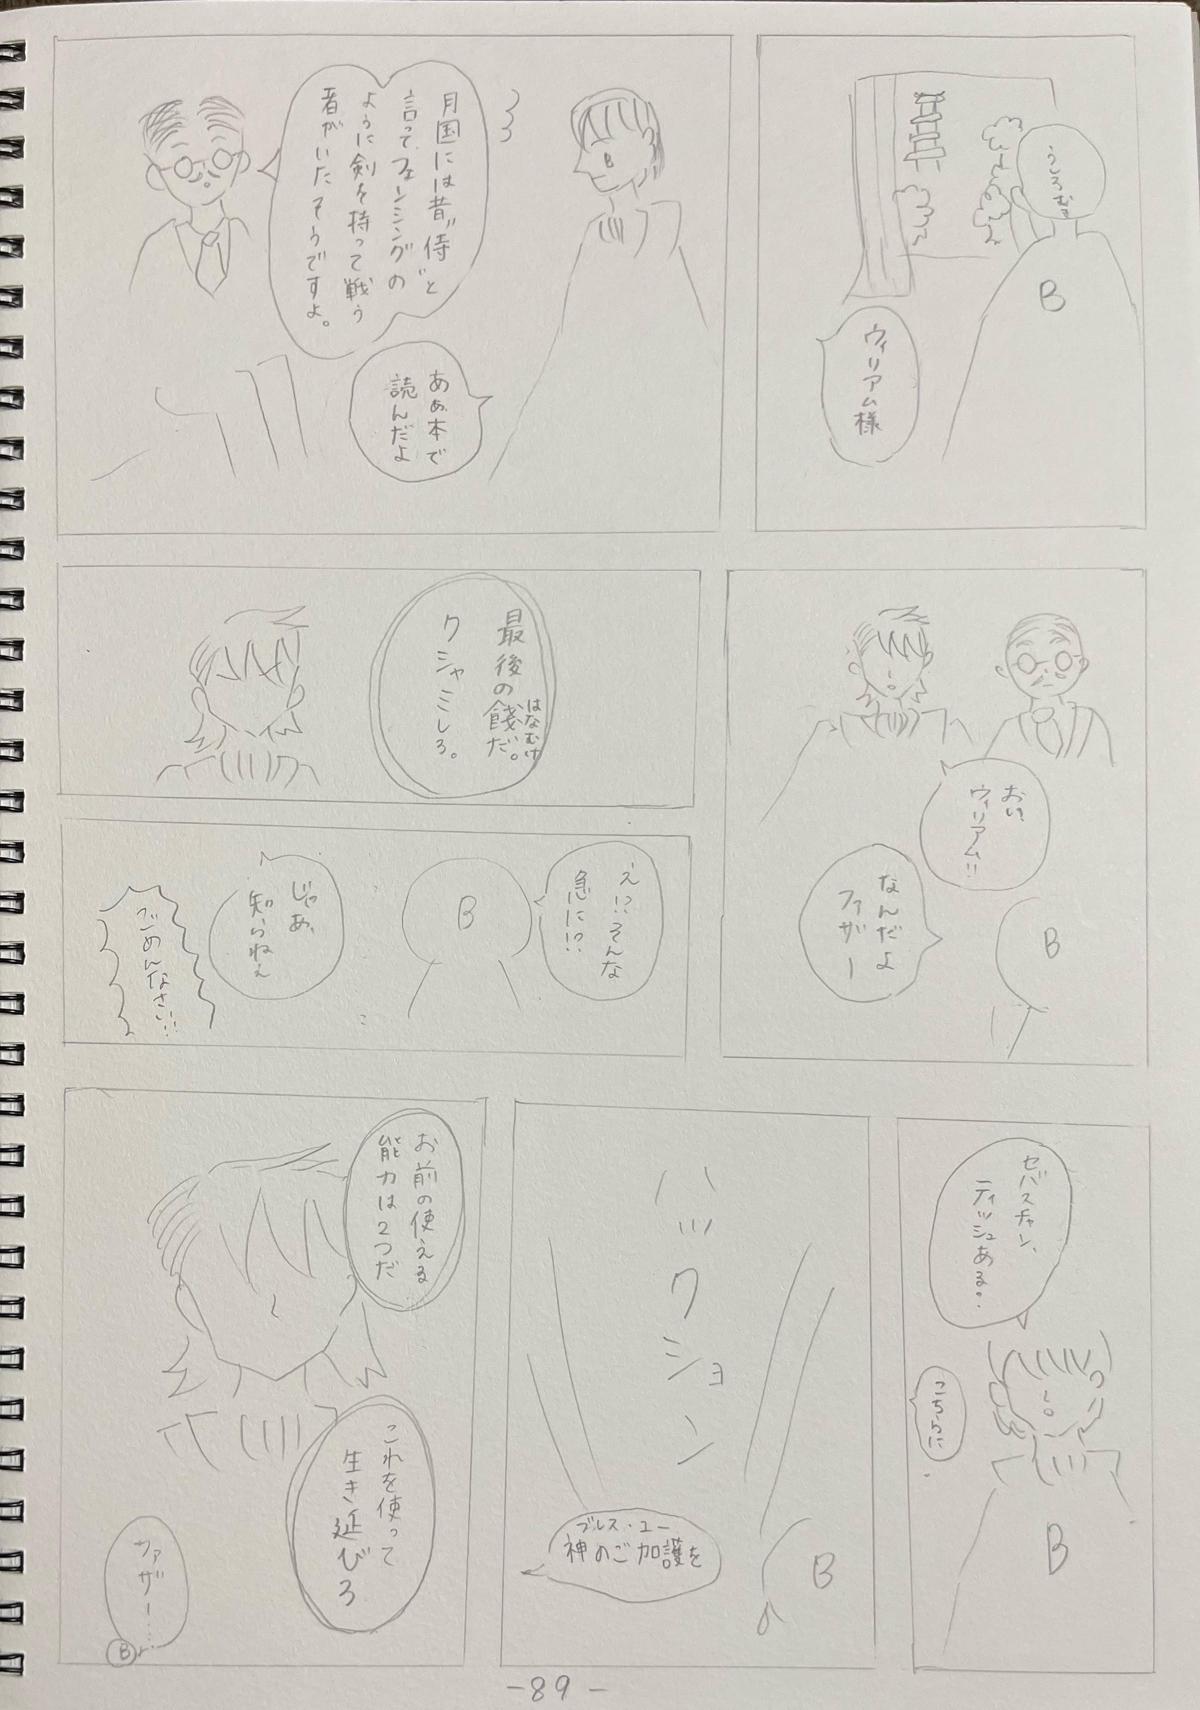 うしろむき
B
ウィリアム様
月国には昔〝侍〟と
言って、フェンシングの
ように剣を持って戦う
者がいたそうですよ。
あぁ、本で
読んだよ
おい、
ウィリアム!!
なんだよ
ファザー
B
最後の餞だ。
はなむけ
クシャミしろ。
え!?そんな
急に!?
B
じゃあ、
知らねぇ
ごめんなさい!!
セバスチャン、
ティッシュある?
こちらに
B
ハックション
ブレス・ユー
神のご加護を
B
お前の使える
能力は2つだ
これを使って
生き延びろ
ファザー……
B
-89-